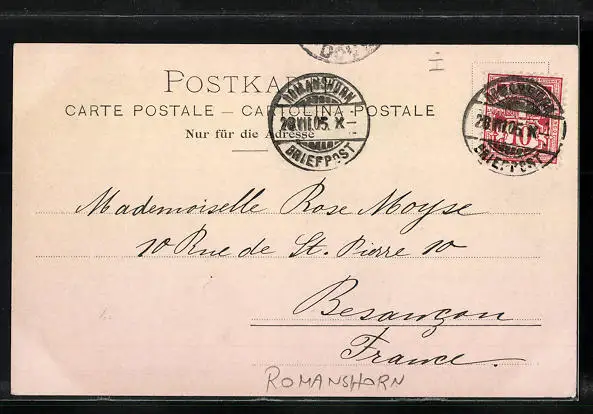 POSTKARTE
CARTE POSTALE — CARTOLINA POSTALE
Nur für die Adresse
ROMANSHORN
28.VII.05. X
BRIEFPOST
ROMANSHORN
28.VII.05. X
BRIEFPOST
10
Mademoiselle Rose Moyse
10 Rue de St. Pierre 10
Besançon
France.
ROMANSHORN